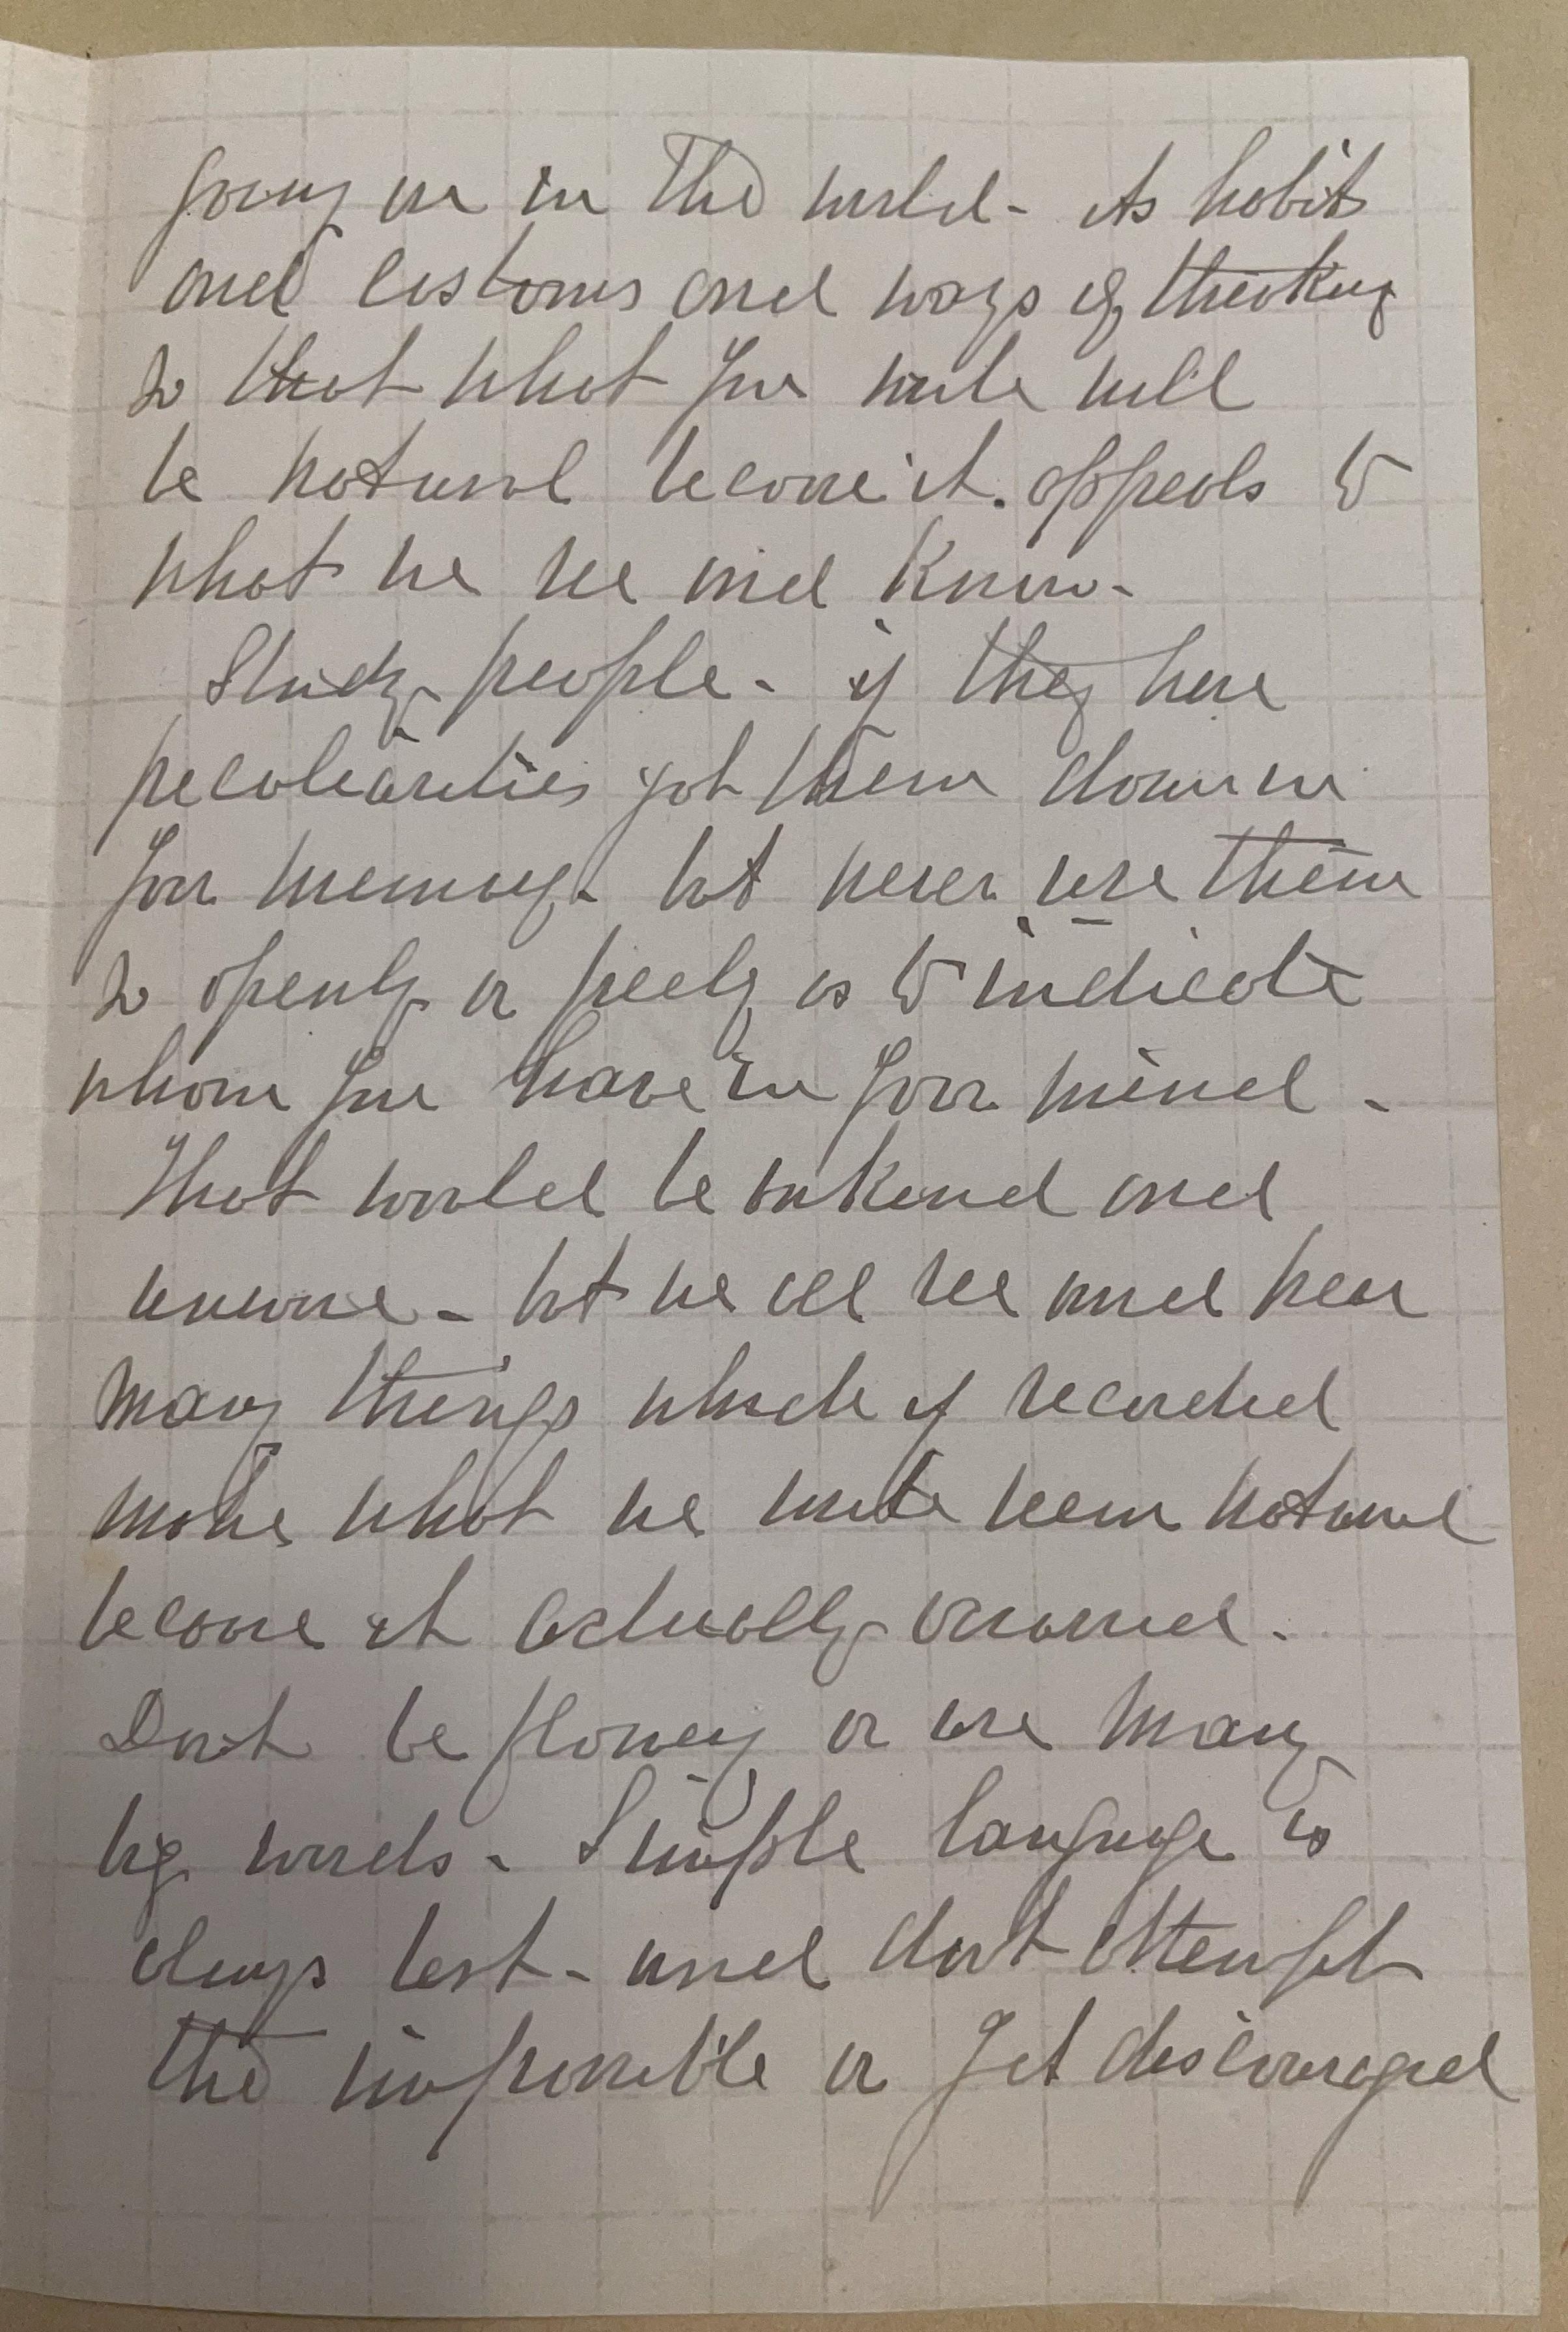 going on in the world - its habits
and customs and ways of thinking
so that what you write will
be natural because it appeals to
what we see and know -
Study people - if they have
peculiarities jot them down in
your memory - but never use them
so openly or freely as to indicate
whom you have in your mind -
That would be unkind and
unwise - but we all see and hear
many things which if recorded
make what we write seem natural
because it actually occurred.
Dont be flowery or use many
big words - Simple language is
always best - and dont attempt
the impossible or get discouraged